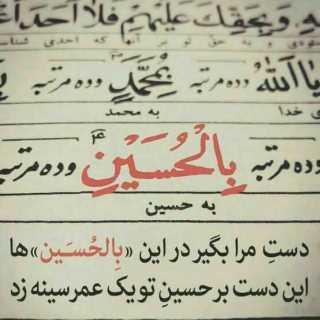 وَبِحَقِّكَ عَلَيْهِمْ فَلا اَحَدَ
و به حق تو بر آنها که احدی شناسا
يا اَللّٰهُ وده مرتبه بِمُحَمَّدٍ وده مرتبه
خدا به محمد
وده مرتبه بِالْحُسَيْنِ وده مرتبه
به حسین
دستِ مرا بگیر در این «بِالحُسَین»ها
این دست بر حسینِ تو یک عمر سینه زد